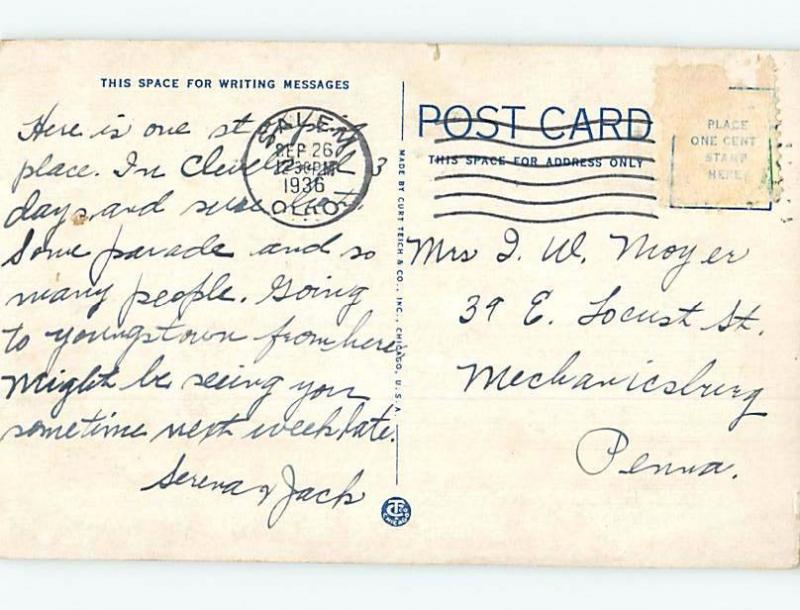 THIS SPACE FOR WRITING MESSAGES
Here is one st
place. In Cleveland 3
days, and sure
Some parade and so
many people. Going
to Youngstown from here
Might be seeing you
sometime next week late.
Serena & Jack
SALEM
SEP 26
12 30 PM
1936
OHIO
MADE BY CURT TEICH & CO., INC., CHICAGO, U.S.A.
POST CARD
THIS SPACE FOR ADDRESS ONLY
PLACE
ONE CENT
STAMP
HERE
Mrs I. W. Moyer
39 E. Locust St.
Mechanicsburg
Penna.
CHICAGO